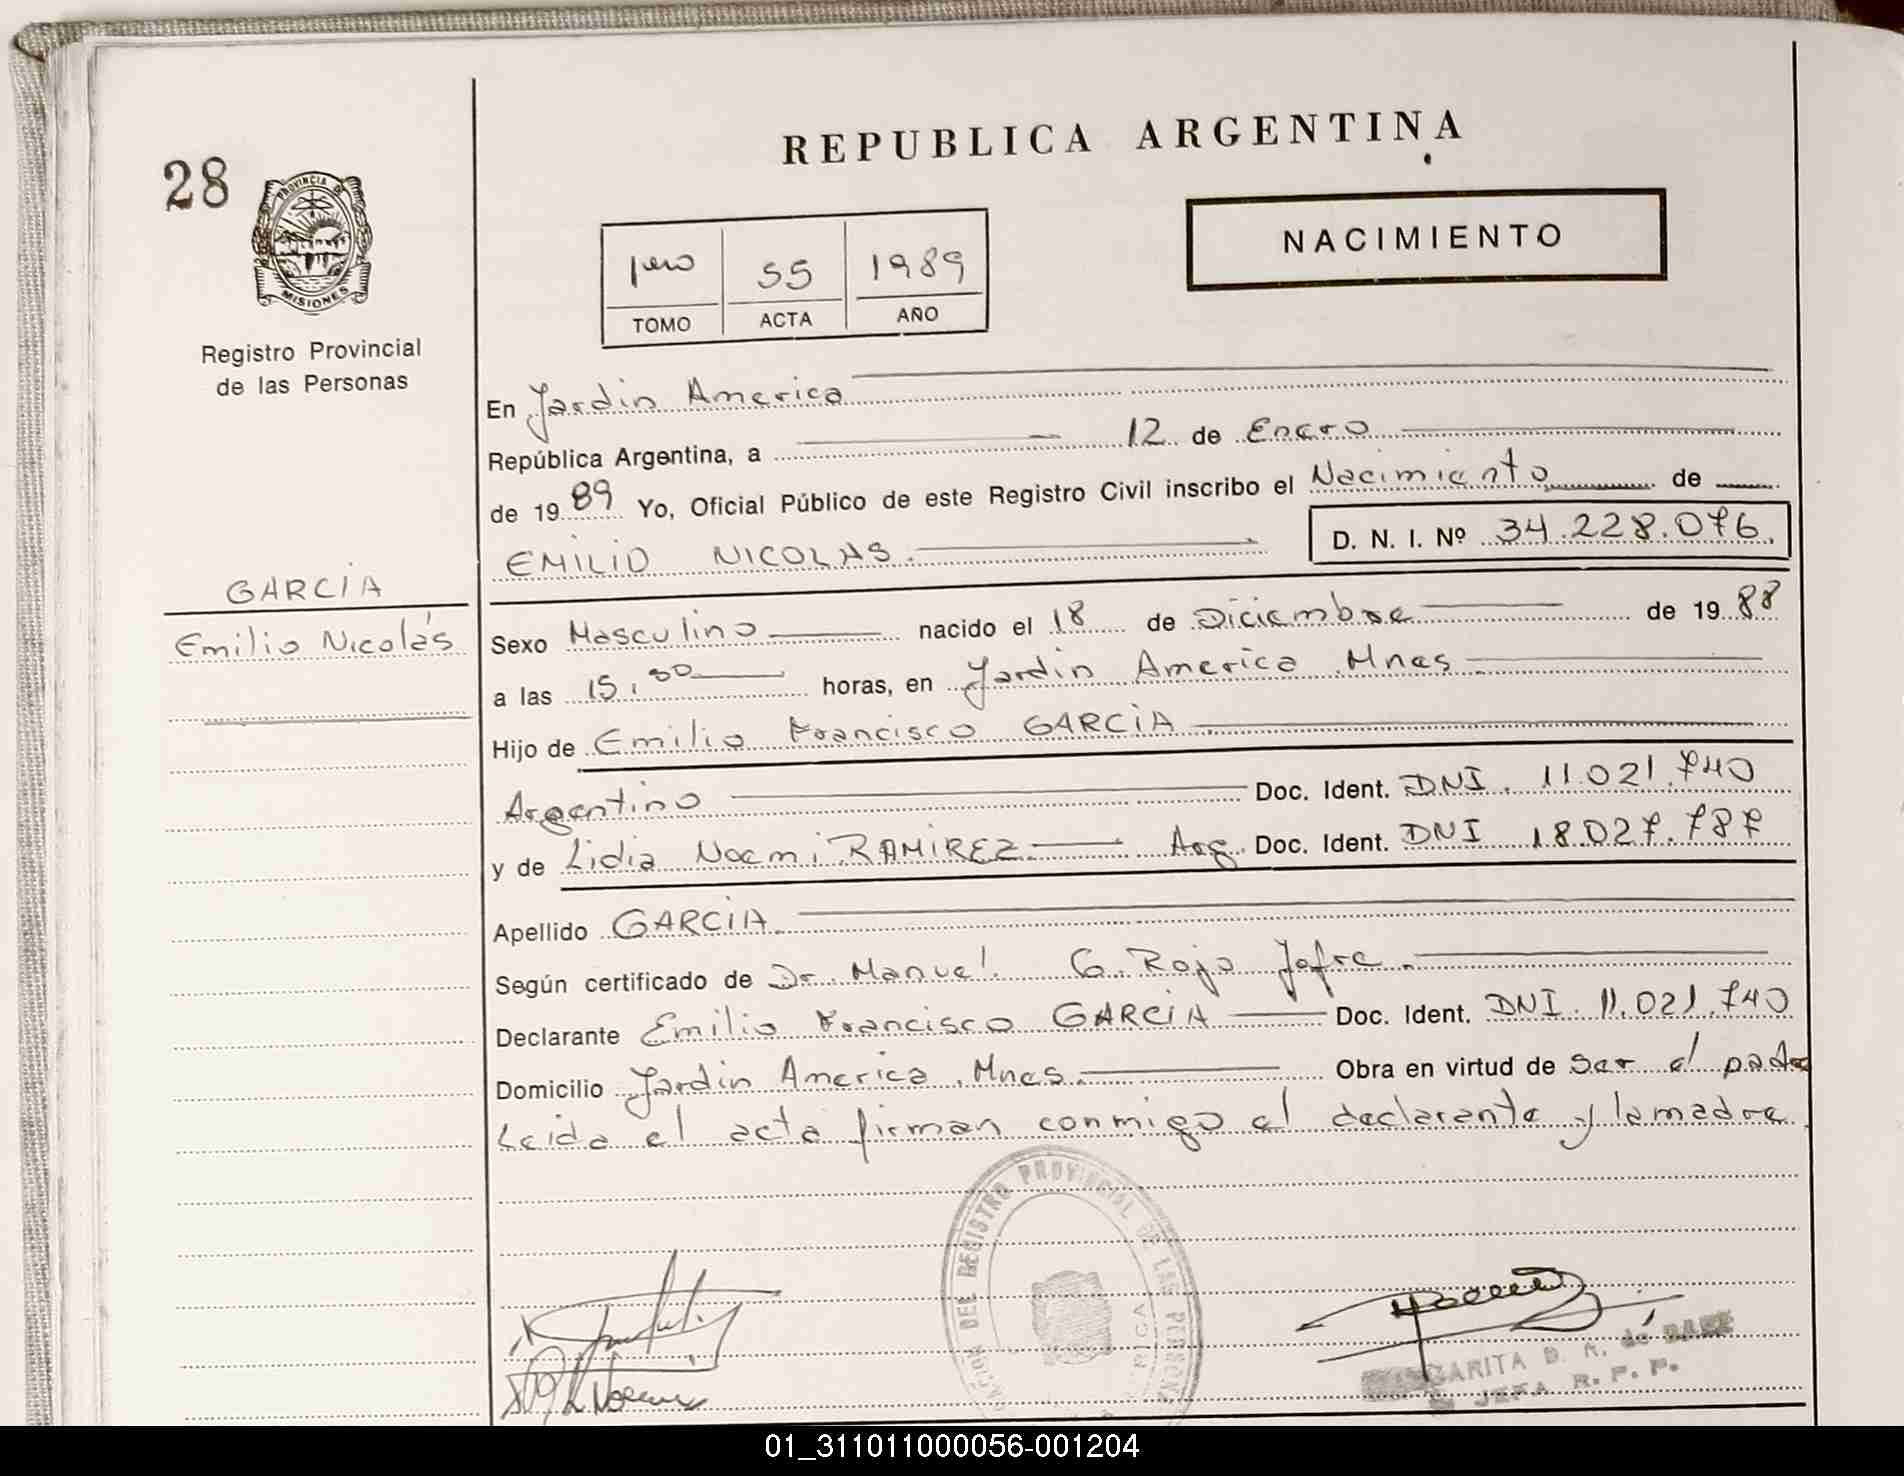 28
PROVINCIA DE
MISIONES
Registro Provincial
de las Personas
GARCIA
Emilio Nicolás
REPUBLICA ARGENTINA
NACIMIENTO
1ero 55 1989
TOMO ACTA AÑO
En Jardin America
República Argentina, a 12 de Enero
de 1989 Yo, Oficial Público de este Registro Civil inscribo el Nacimiento de
EMILIO NICOLAS. D. N. I. Nº 34.228.076.
Sexo Masculino nacido el 18 de Diciembre de 1988
a las 15, horas, en Jardin America Mnes
Hijo de Emilio Francisco GARCIA
Argentino Doc. Ident. DNI. 11.021.740
y de Lidia Noemi RAMIREZ Arg. Doc. Ident. DNI 18.027.787
Apellido GARCIA.
Según certificado de Dr. Manuel G. Rojo Jofre.
Declarante Emilio Francisco GARCIA Doc. Ident. DNI. 11.021.740
Domicilio Jardin America Mnes. Obra en virtud de ser el padre
Leida el acta firman conmigo el declarante y la madre.
DEL REGISTRO PROVINCIAL DE LAS PERSONAS
GARITA B. R. de
JEFA R. P. P.
01_311011000056-001204